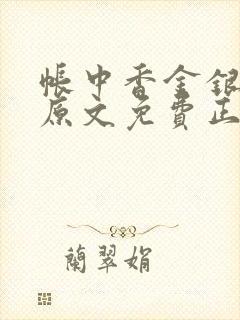 帳中香金銀
原文免費正
蘭翠娟